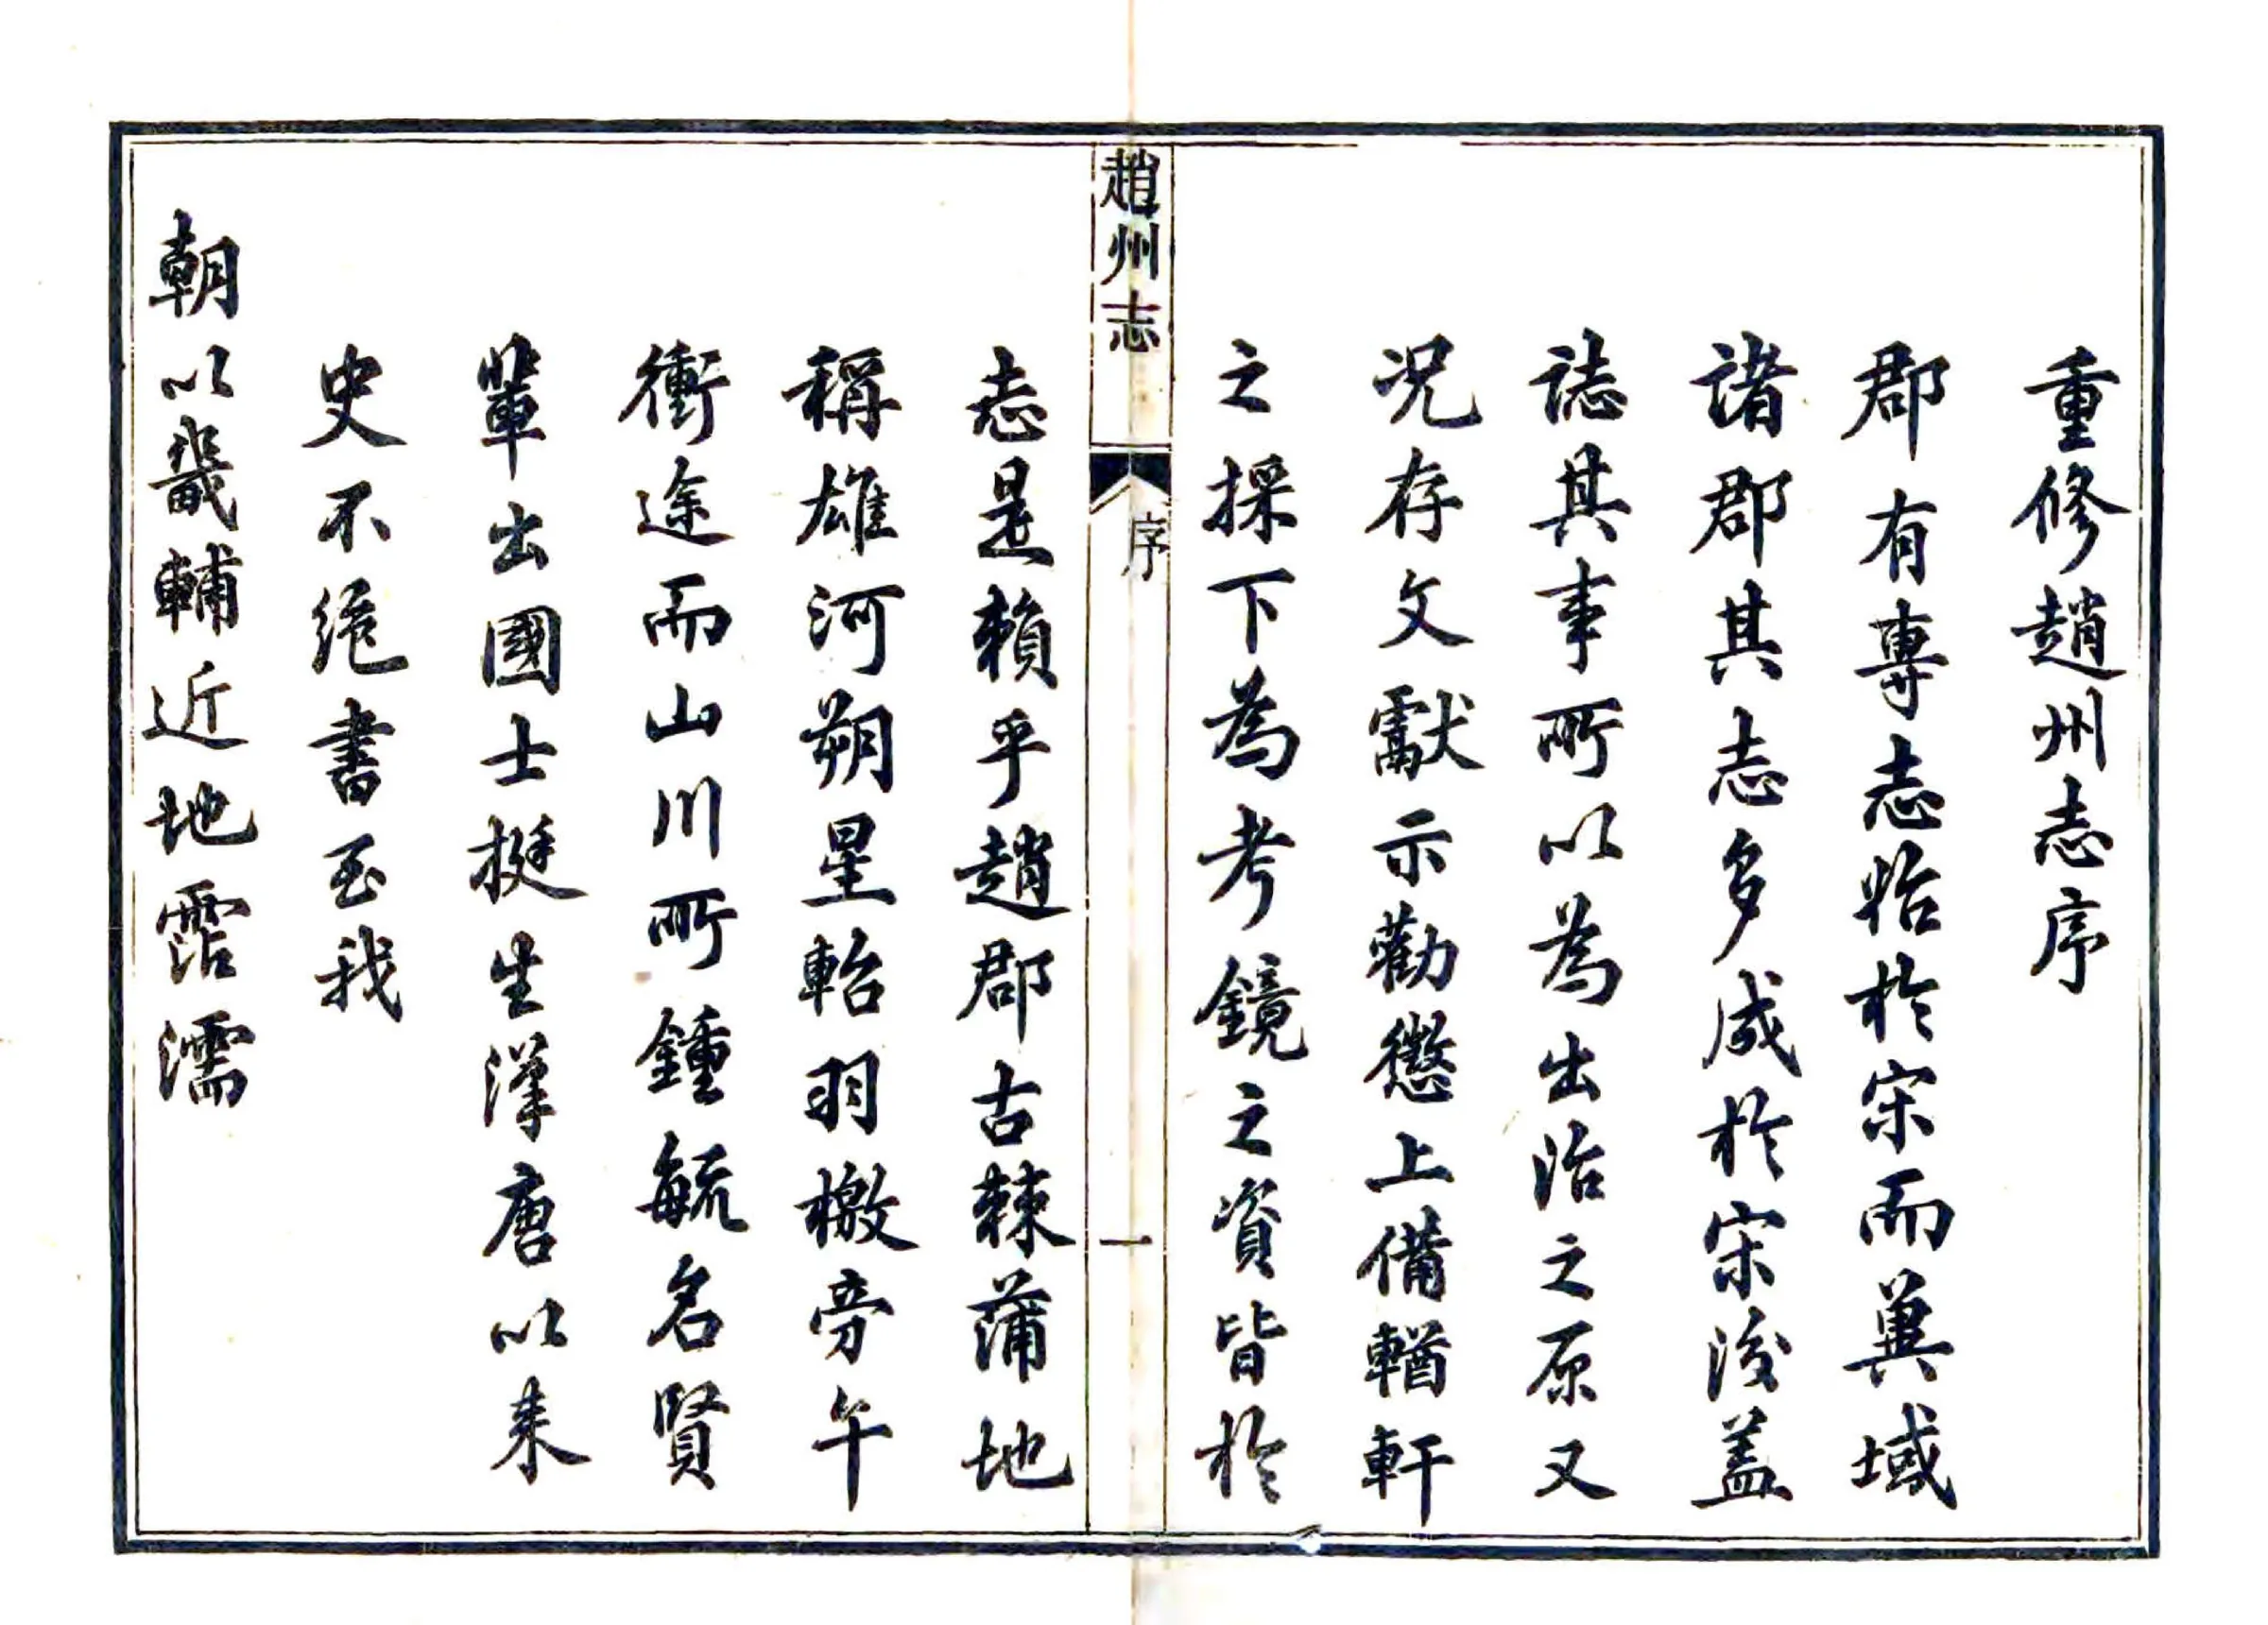 重修趙州志序
郡有專志始於宋而冀域
諸郡其志多成於宋後蓋
誌其事所以為出治之原又
況存文獻示勸懲上備輶軒
之採下為考鏡之資皆於
趙州志
序
一
志是賴乎趙郡古棘蒲地
稱雄河朔星軺羽檄旁午
衝途而山川所鍾毓名賢
輩出國士挺生漢唐以来
史不絕書至我
朝以畿輔近地霑濡